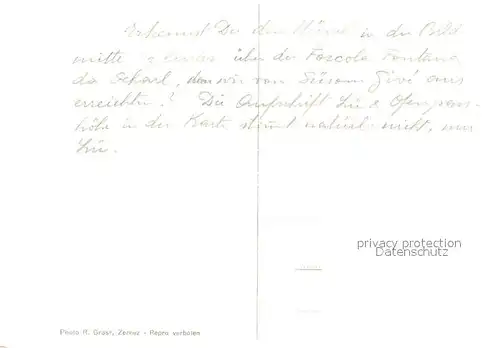 Erkennst Du den in der Bild
mitte über der Foscola Fontana
da Scharl, den wir von Süsom Givé aus
erreichten? Die Aufschrift Lü & Ofenpass-
höhe in der Karte stimmt natürl. nicht, nur
Lü.
privacy protection
Datenschutz
Photo R. Grass, Zernez - Repro verboten